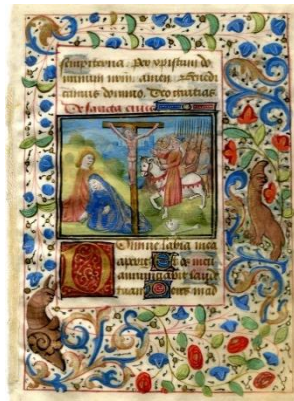 sempiterna. Per xpistum do
minum nrm. amen. Benedi
camus domino. Deo gratias
De sancta cruce
Domine labia mea
aperies. Et os meu
annunciabit laude
tuam. Deus in ad